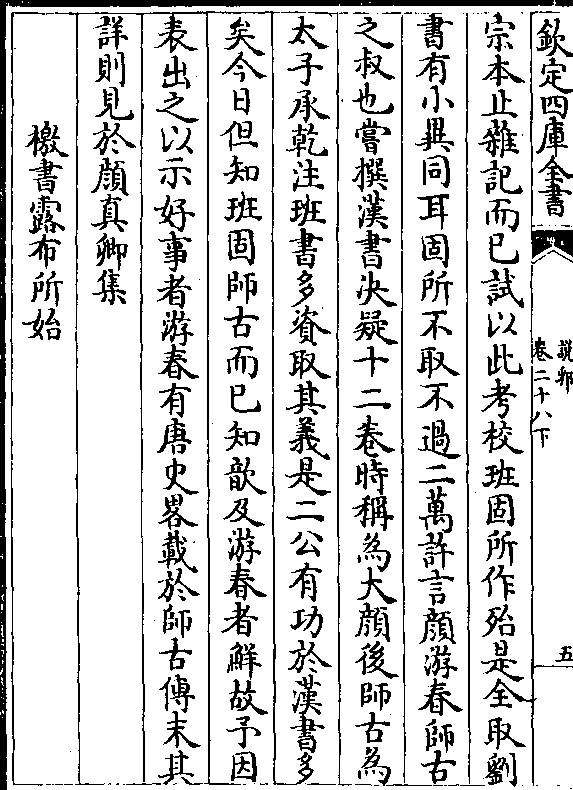 欽定四庫全書
說郛
卷二十八下
五
宗本止雜記而已試以此考校班固所作殆是全取劉
書有小異同耳固所不取不過二萬許言顔游春師古
之叔也嘗撰漢書决疑十二卷時稱為大顔後師古為
太子承乾注班書多資取其義是二公有功於漢書多
矣今日但知班固師古而已知歆及游春者鮮故予因
表出之以示好事者游春有唐史畧載於師古傳末其
詳則見於顔真卿集
檄書露布所始